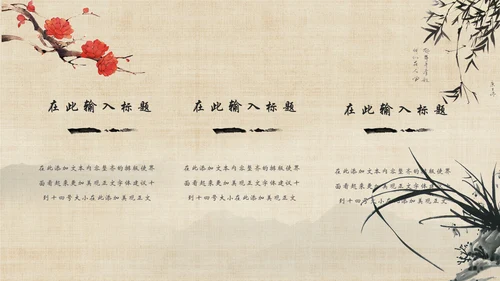 在此输入标题
在此添加文本内容整齐的排版使界
面看起来更加美观正文字体建议十
到十四号大小在此添加美观正文
在此输入标题
在此添加文本内容整齐的排版使界
面看起来更加美观正文字体建议十
到十四号大小在此添加美观正文
在此输入标题
在此添加文本内容整齐的排版使界
面看起来更加美观正文字体建议十
到十四号大小在此添加美观正文